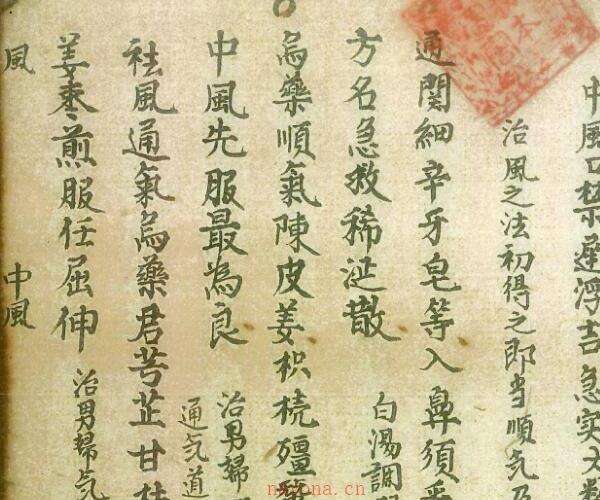 中風口禁不遲浮吉急实大
治風之法初得之即当順气
通関細辛牙皂等入鼻須
方名急救稀涎散
白湯調
烏藥順氣陳皮姜枳桔殭
中風先服最為良
治男婦
通气道
祛風通氣烏藥君芎芷甘桂
姜枣煎服任屈伸
治男婦气
風
中風
nayona.cn